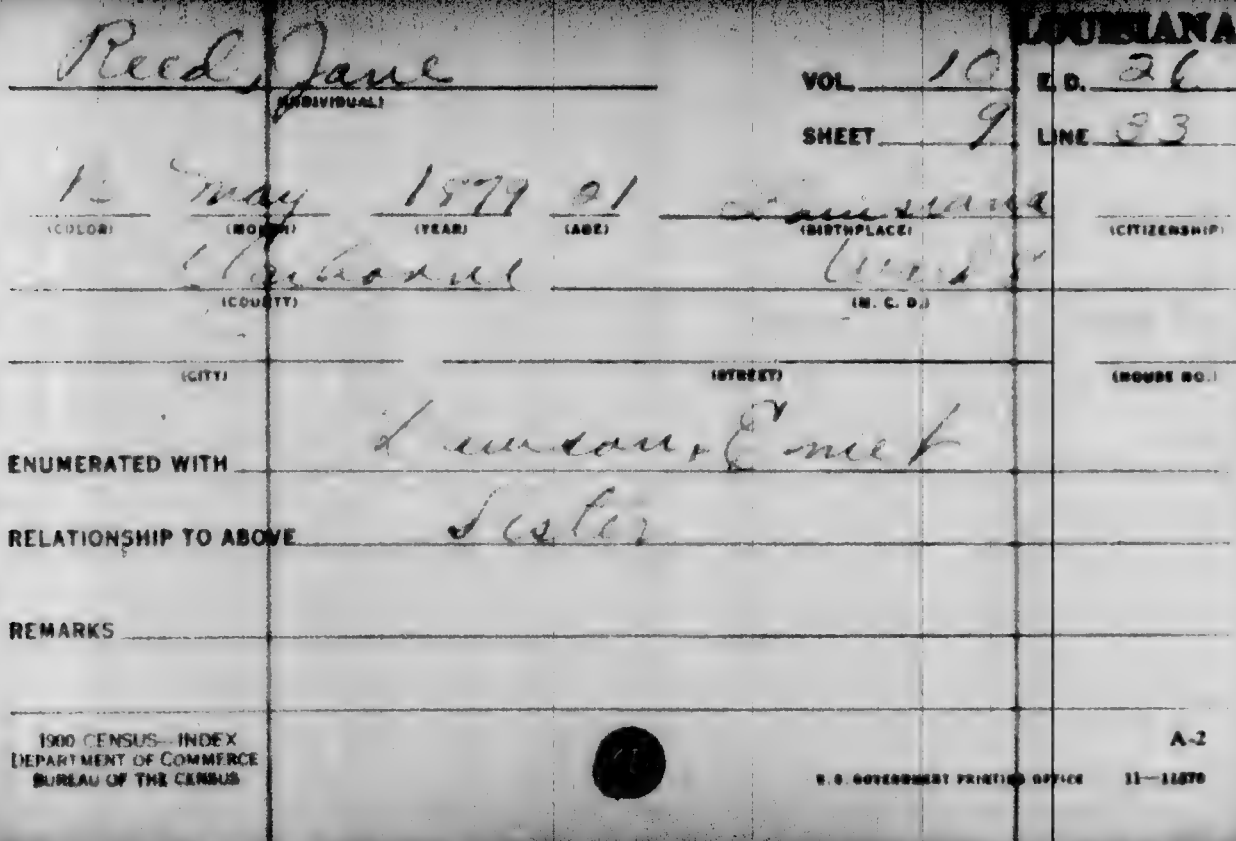 LOUISIANA
Reed, Jane
(INDIVIDUAL)
VOL. 10 E. D. 26
SHEET 9 LINE 33
May 1879 21 Louisiana
(COLOR) (MONTH) (YEAR) (AGE) (BIRTHPLACE) (CITIZENSHIP)
Claiborne Ward
(COUNTY) (M. C. D.)
(CITY) (STREET) (HOUSE NO.)
ENUMERATED WITH Lawson, Emet
RELATIONSHIP TO ABOVE Sister
REMARKS
1900 CENSUS—INDEX
DEPARTMENT OF COMMERCE
BUREAU OF THE CENSUS
A-2
U.S. GOVERNMENT PRINTING OFFICE 11—11570